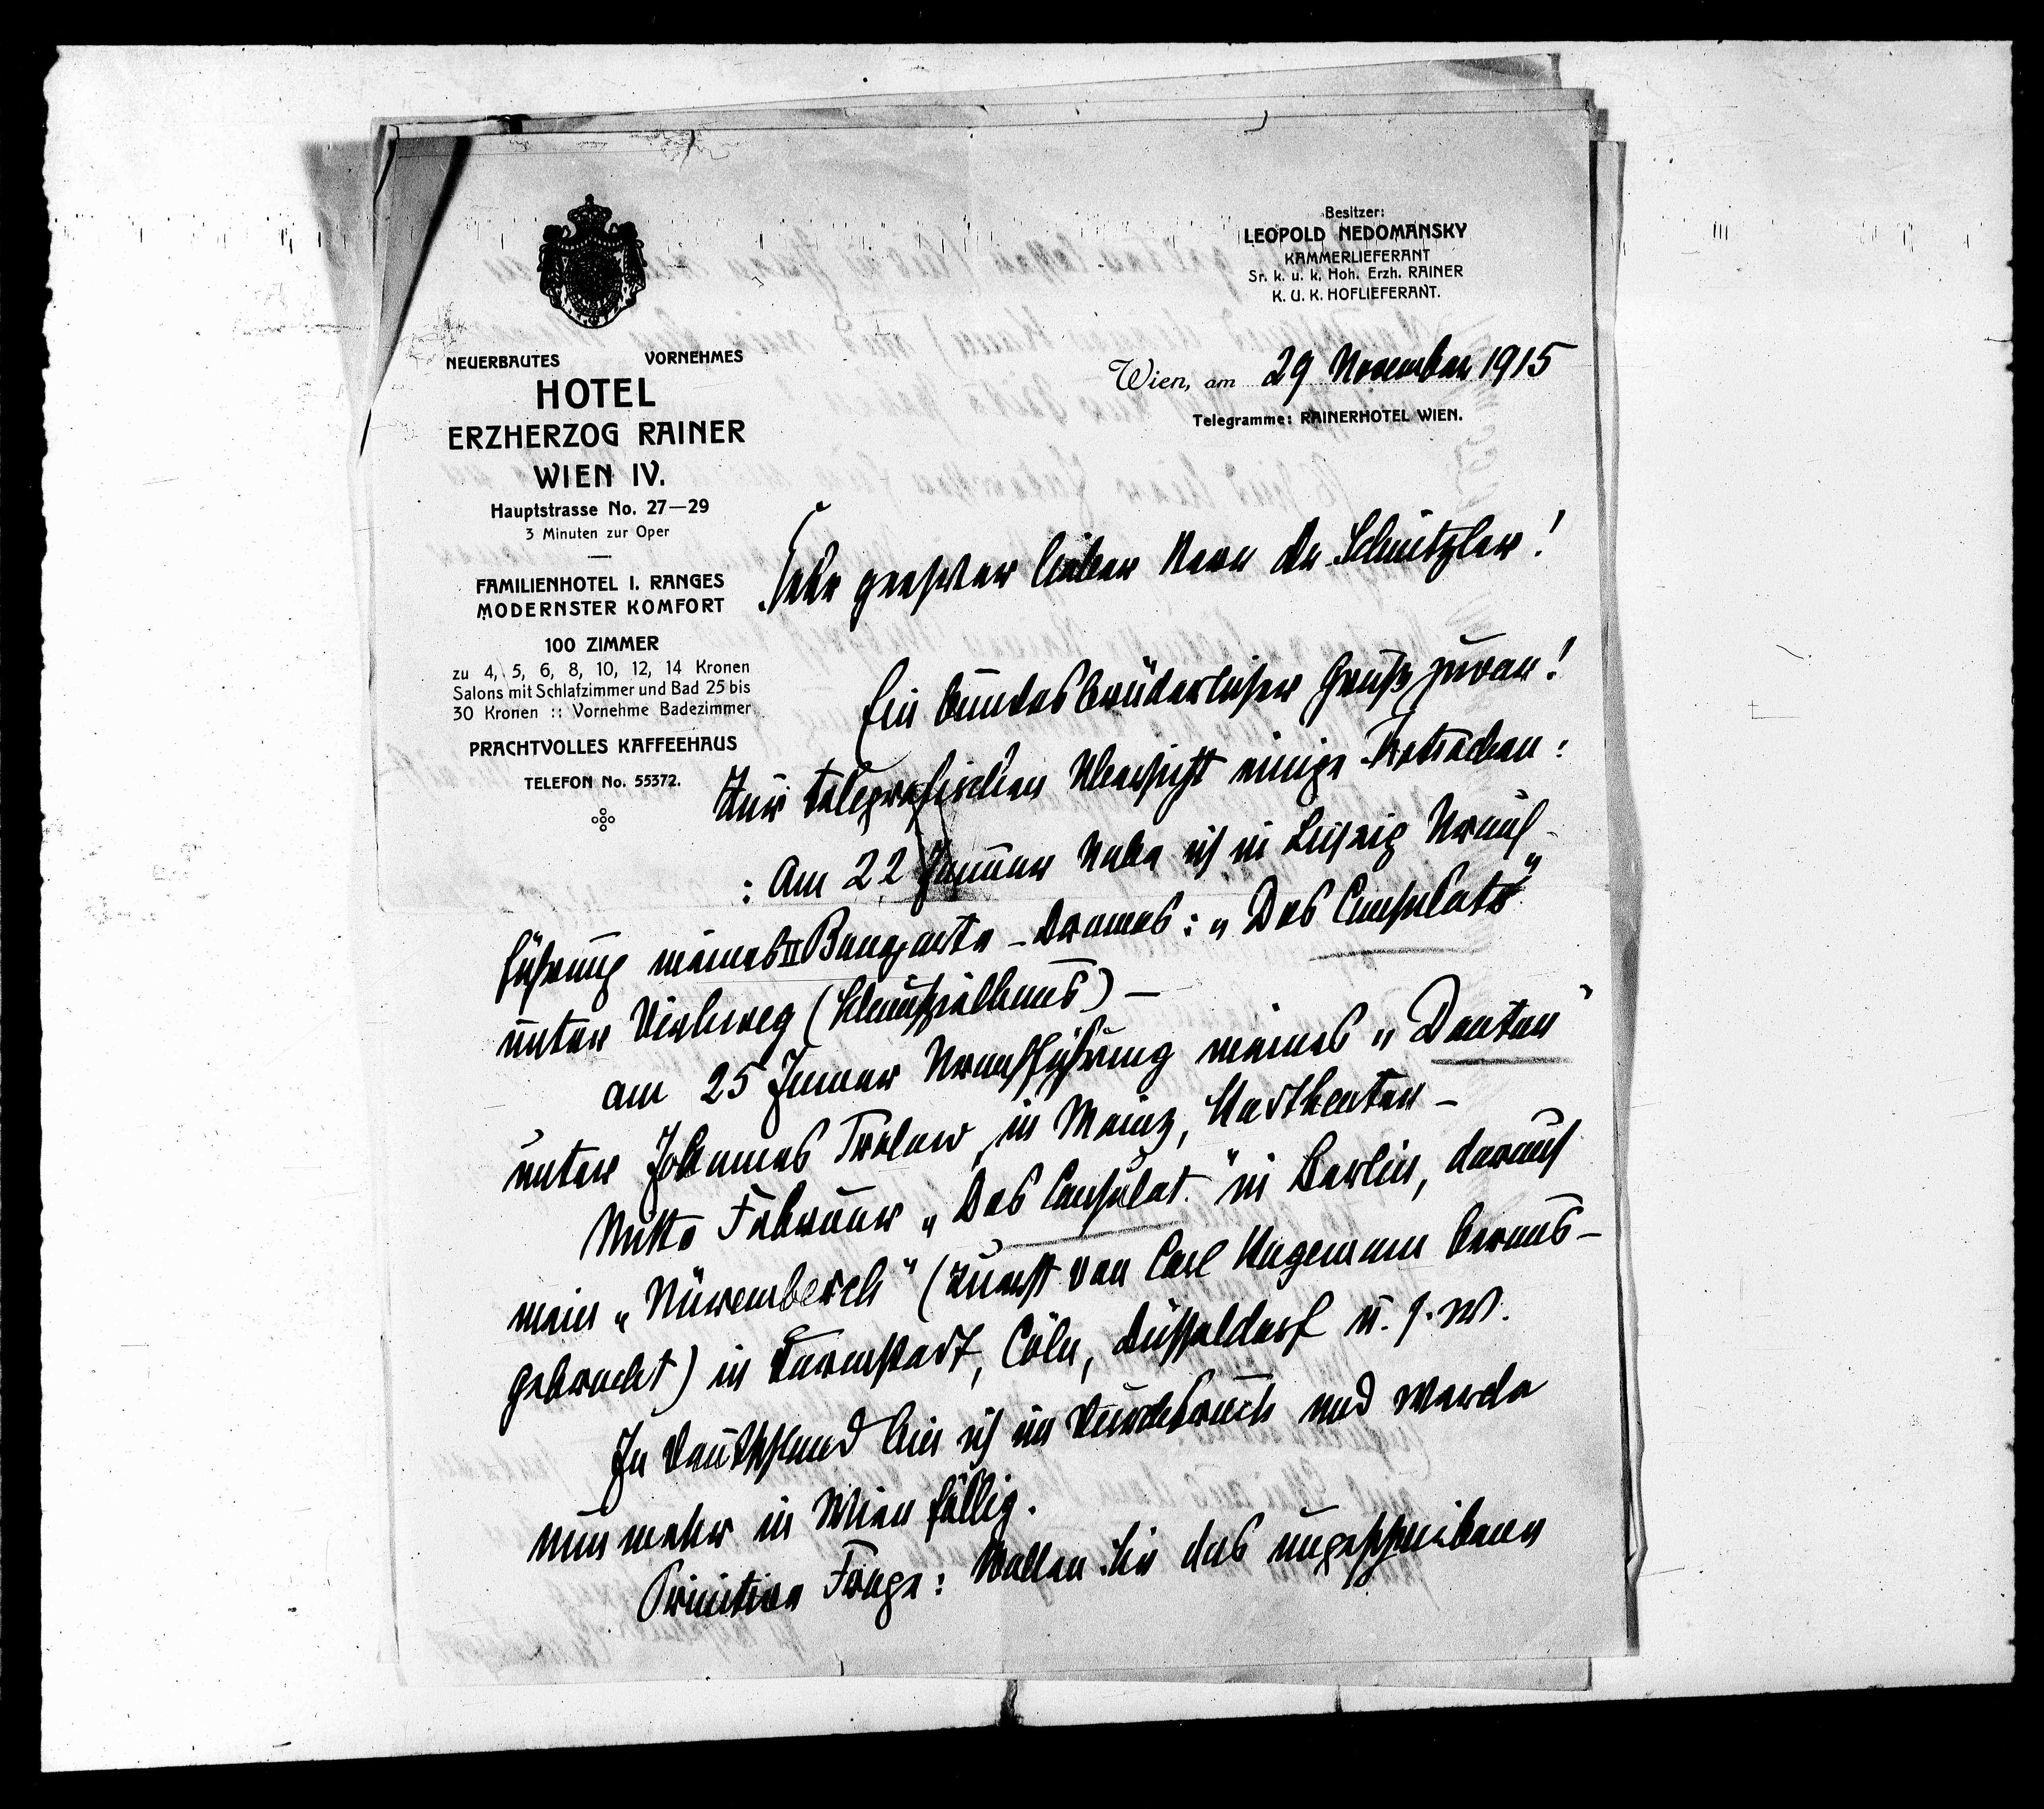 Besitzer:
LEOPOLD NEDOMANSKY
KAMMERLIEFERANT
Sr. k. u. k. Hoh. Erzh. RAINER
K. U. K. HOFLIEFERANT.
NEUERBAUTES VORNEHMES
HOTEL
ERZHERZOG RAINER
WIEN IV.
Hauptstrasse No. 27—29
3 Minuten zur Oper
FAMILIENHOTEL I. RANGES
MODERNSTER KOMFORT
100 ZIMMER
zu 4, 5, 6, 8, 10, 12, 14 Kronen
Salons mit Schlafzimmer und Bad 25 bis
30 Kronen :: Vornehme Badezimmer
PRACHTVOLLES KAFFEEHAUS
TELEFON No. 55372.
Wien, am 29 November 1915
Telegramme: RAINERHOTEL WIEN.
Sehr geehrter lieber Herr Dr Schnitzler!
Ein bundesbrüderlicher Gruß zuvor!
Zur telegrafischen Übersicht einige Tatsachen:
: Am 22 Januar habe ich in Leipzig Urauf-
führung meines II Bonaparte-Dramas: „Das Consulat"
unter Viehweg (Schauspielhaus) –
am 25 Januar Uraufführung meines „Danton"
unter Johannes Tralow in Mainz, Stadttheater –
Mitte Februar „Das Consulat" in Berlin, darauf
mein „Nüremberch" (zuerst von Carl Hagemann heraus-
gebracht) in Darmstadt, Cöln, Düsseldorf u. s. w.
In Deutschland bin ich im Durchbruch und werde
nunmehr in Wien fällig.
Primitive Frage: Wollen Sie das